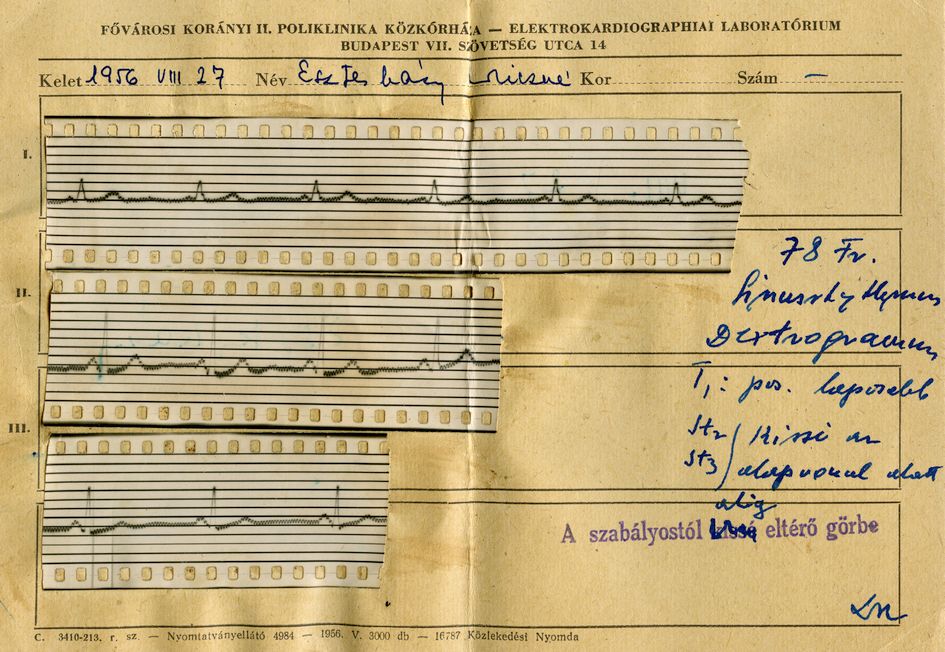 FŐVÁROSI KORÁNYI II. POLIKLINIKA KÖZKÓRHÁZA — ELEKTROKARDIOGRAPHIAI LABORATÓRIUM
BUDAPEST VII. SZÖVETSÉG UTCA 14
Kelet 1956 VIII 27 Név Kor Szám —
I.
II.
III.
78 Fr.
Sinusrhythmus
Dextrogramm
T1: pos. laposabb
St2 Kissé az
St3 alapvonal alatt
alig
A szabályostól kissé eltérő görbe
C. 3410-213. r. sz. — Nyomtatványellátó 4984 — 1956. V. 3000 db — 16787 Közlekedési Nyomda